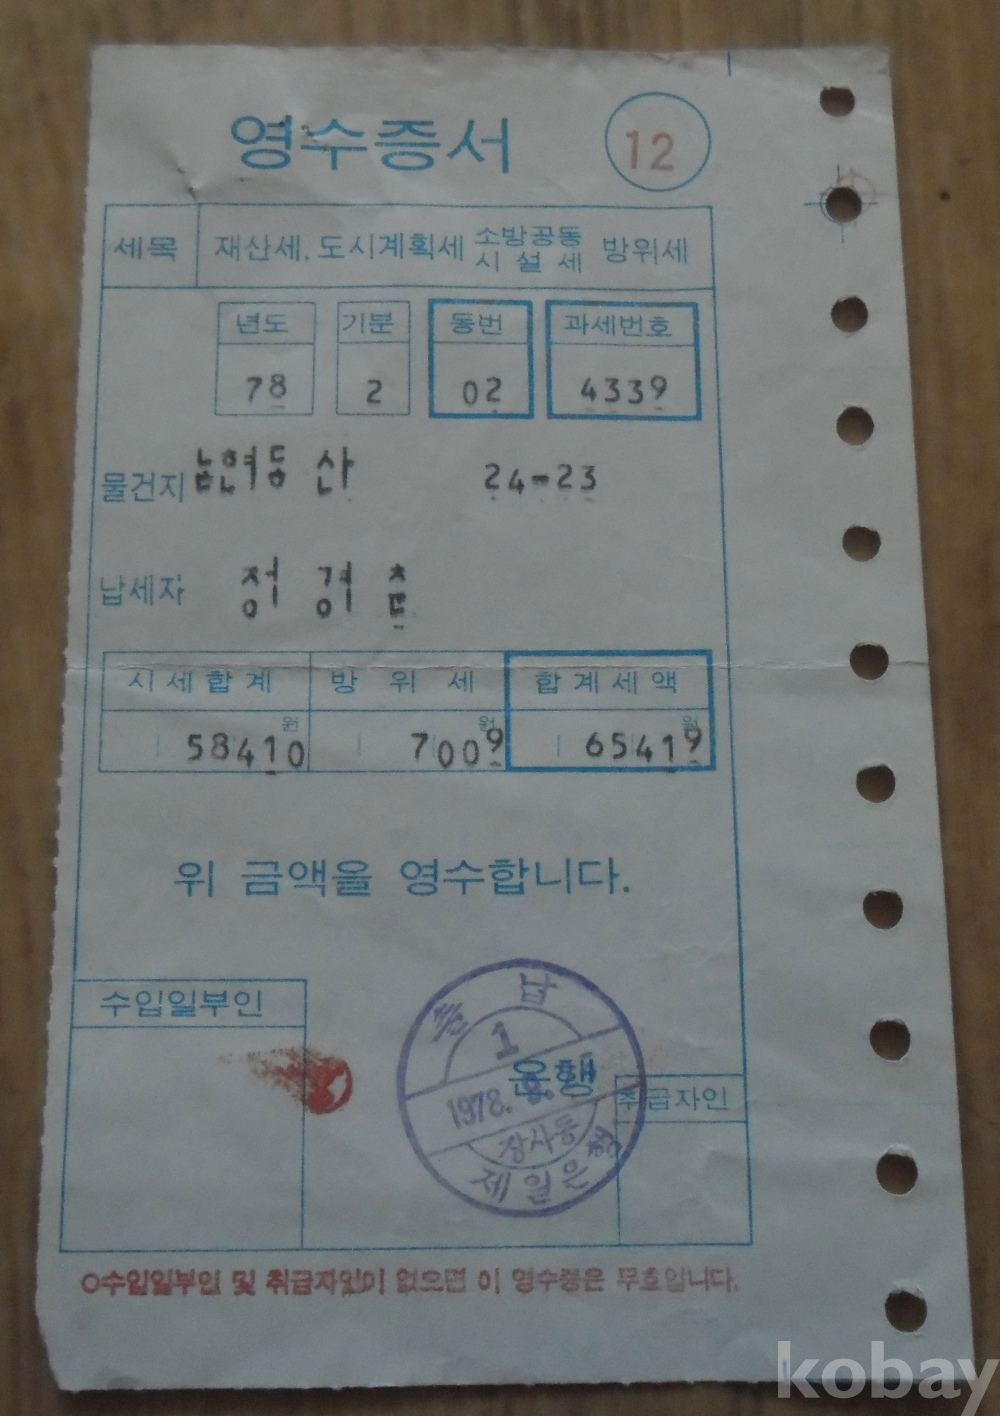 영수증서 12
세목 재산세, 도시계획세 소방공동시설세 방위세
년도 기분 동번 과세번호
78 2 02 4339
물건지 남현동 산 24-23
납세자 정경
시세합계 방위세 합계세액
58410원 7009원 65419원
위 금액을 영수합니다.
수입일부인
납
1
은행
1978.
장사동
제일은행
취급자인
○수입일부인 및 취급자인이 없으면 이 영수증은 무효입니다.
kobay